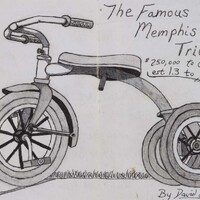 The Famous
Memphis
Tri
$250,000 to
est 1.3 to
By David